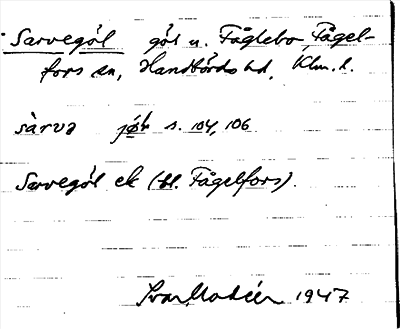 Sarvegöl göl u. Fåglebo, Fågel-
fors sn, Handbörds hd, Klm. l.
sàrvə jø̀l s. 104, 106
Sarvegöl ek (bl. Fågelfors).
Ivar Modéer 1947